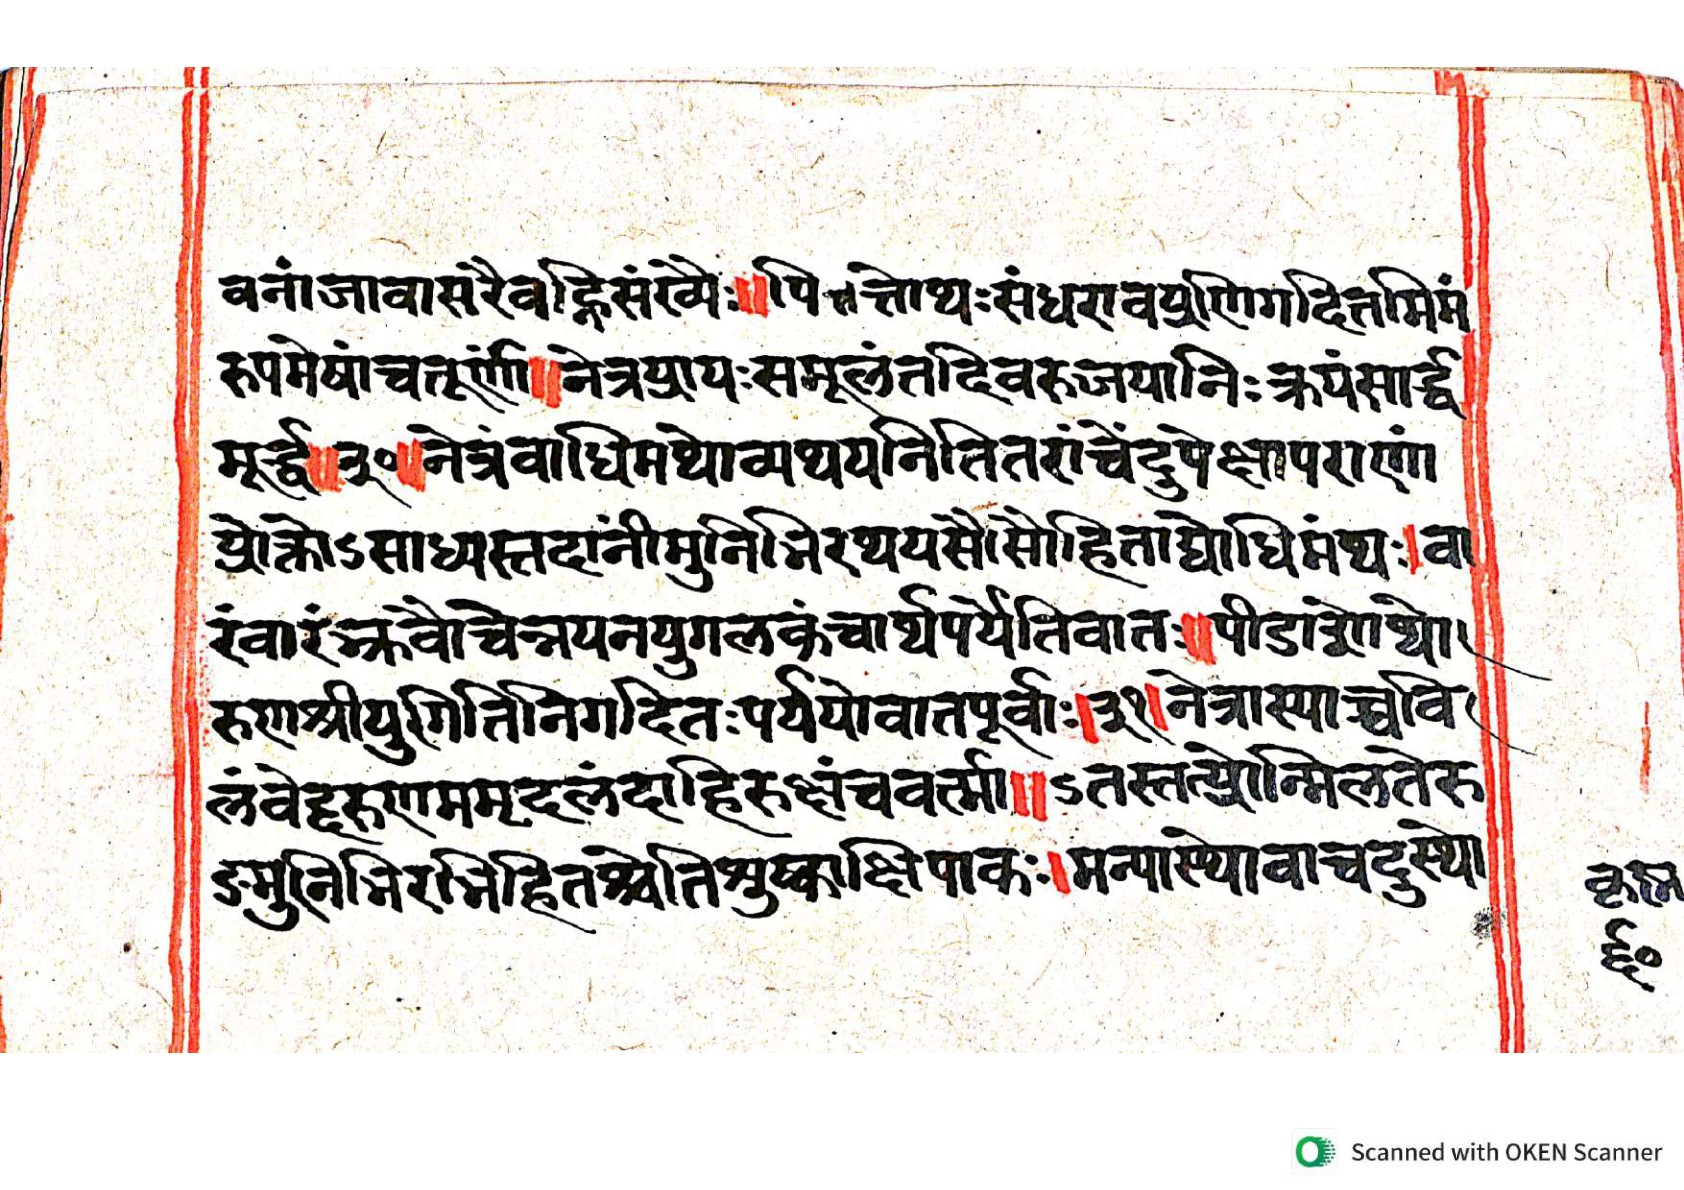 वनांजावासरैवह्निसंख्यैः॥पित्तोथःसंधरावयुणिगदितमिमं
रुपमेषांचतूर्णां॥नेत्रयप्रायःसमूलंतदिवरुजयानिःक्रपंसार्द्ध
मूर्द्ध॥३०॥नेत्रंवाधिमथोव्यथयनितितरांचेंदुपेक्षापराणां
प्रोक्तोऽसाध्यस्तदानींमुनिभिरथयसौसोहिताद्योधिमंथः।वा
रंवारंभ्रुवौचेन्नयनयुगलकंचार्थपर्येतिवातः॥पीडां
रुणश्रीयुगितिनिगदितःपर्ययोवातपूर्वाः।३१।नेत्रास्याच्चवि
लंवेद्दारुणममृदलंदाहिरुक्षंचवर्त्मा॥ऽतस्तत्प्रोन्मिलतेरु
ङमुनिभिरभिहितश्चेतिशुष्काक्षिपाकः।मन्यास्थोवाचदुस्थो
६०
Scanned with OKEN Scanner